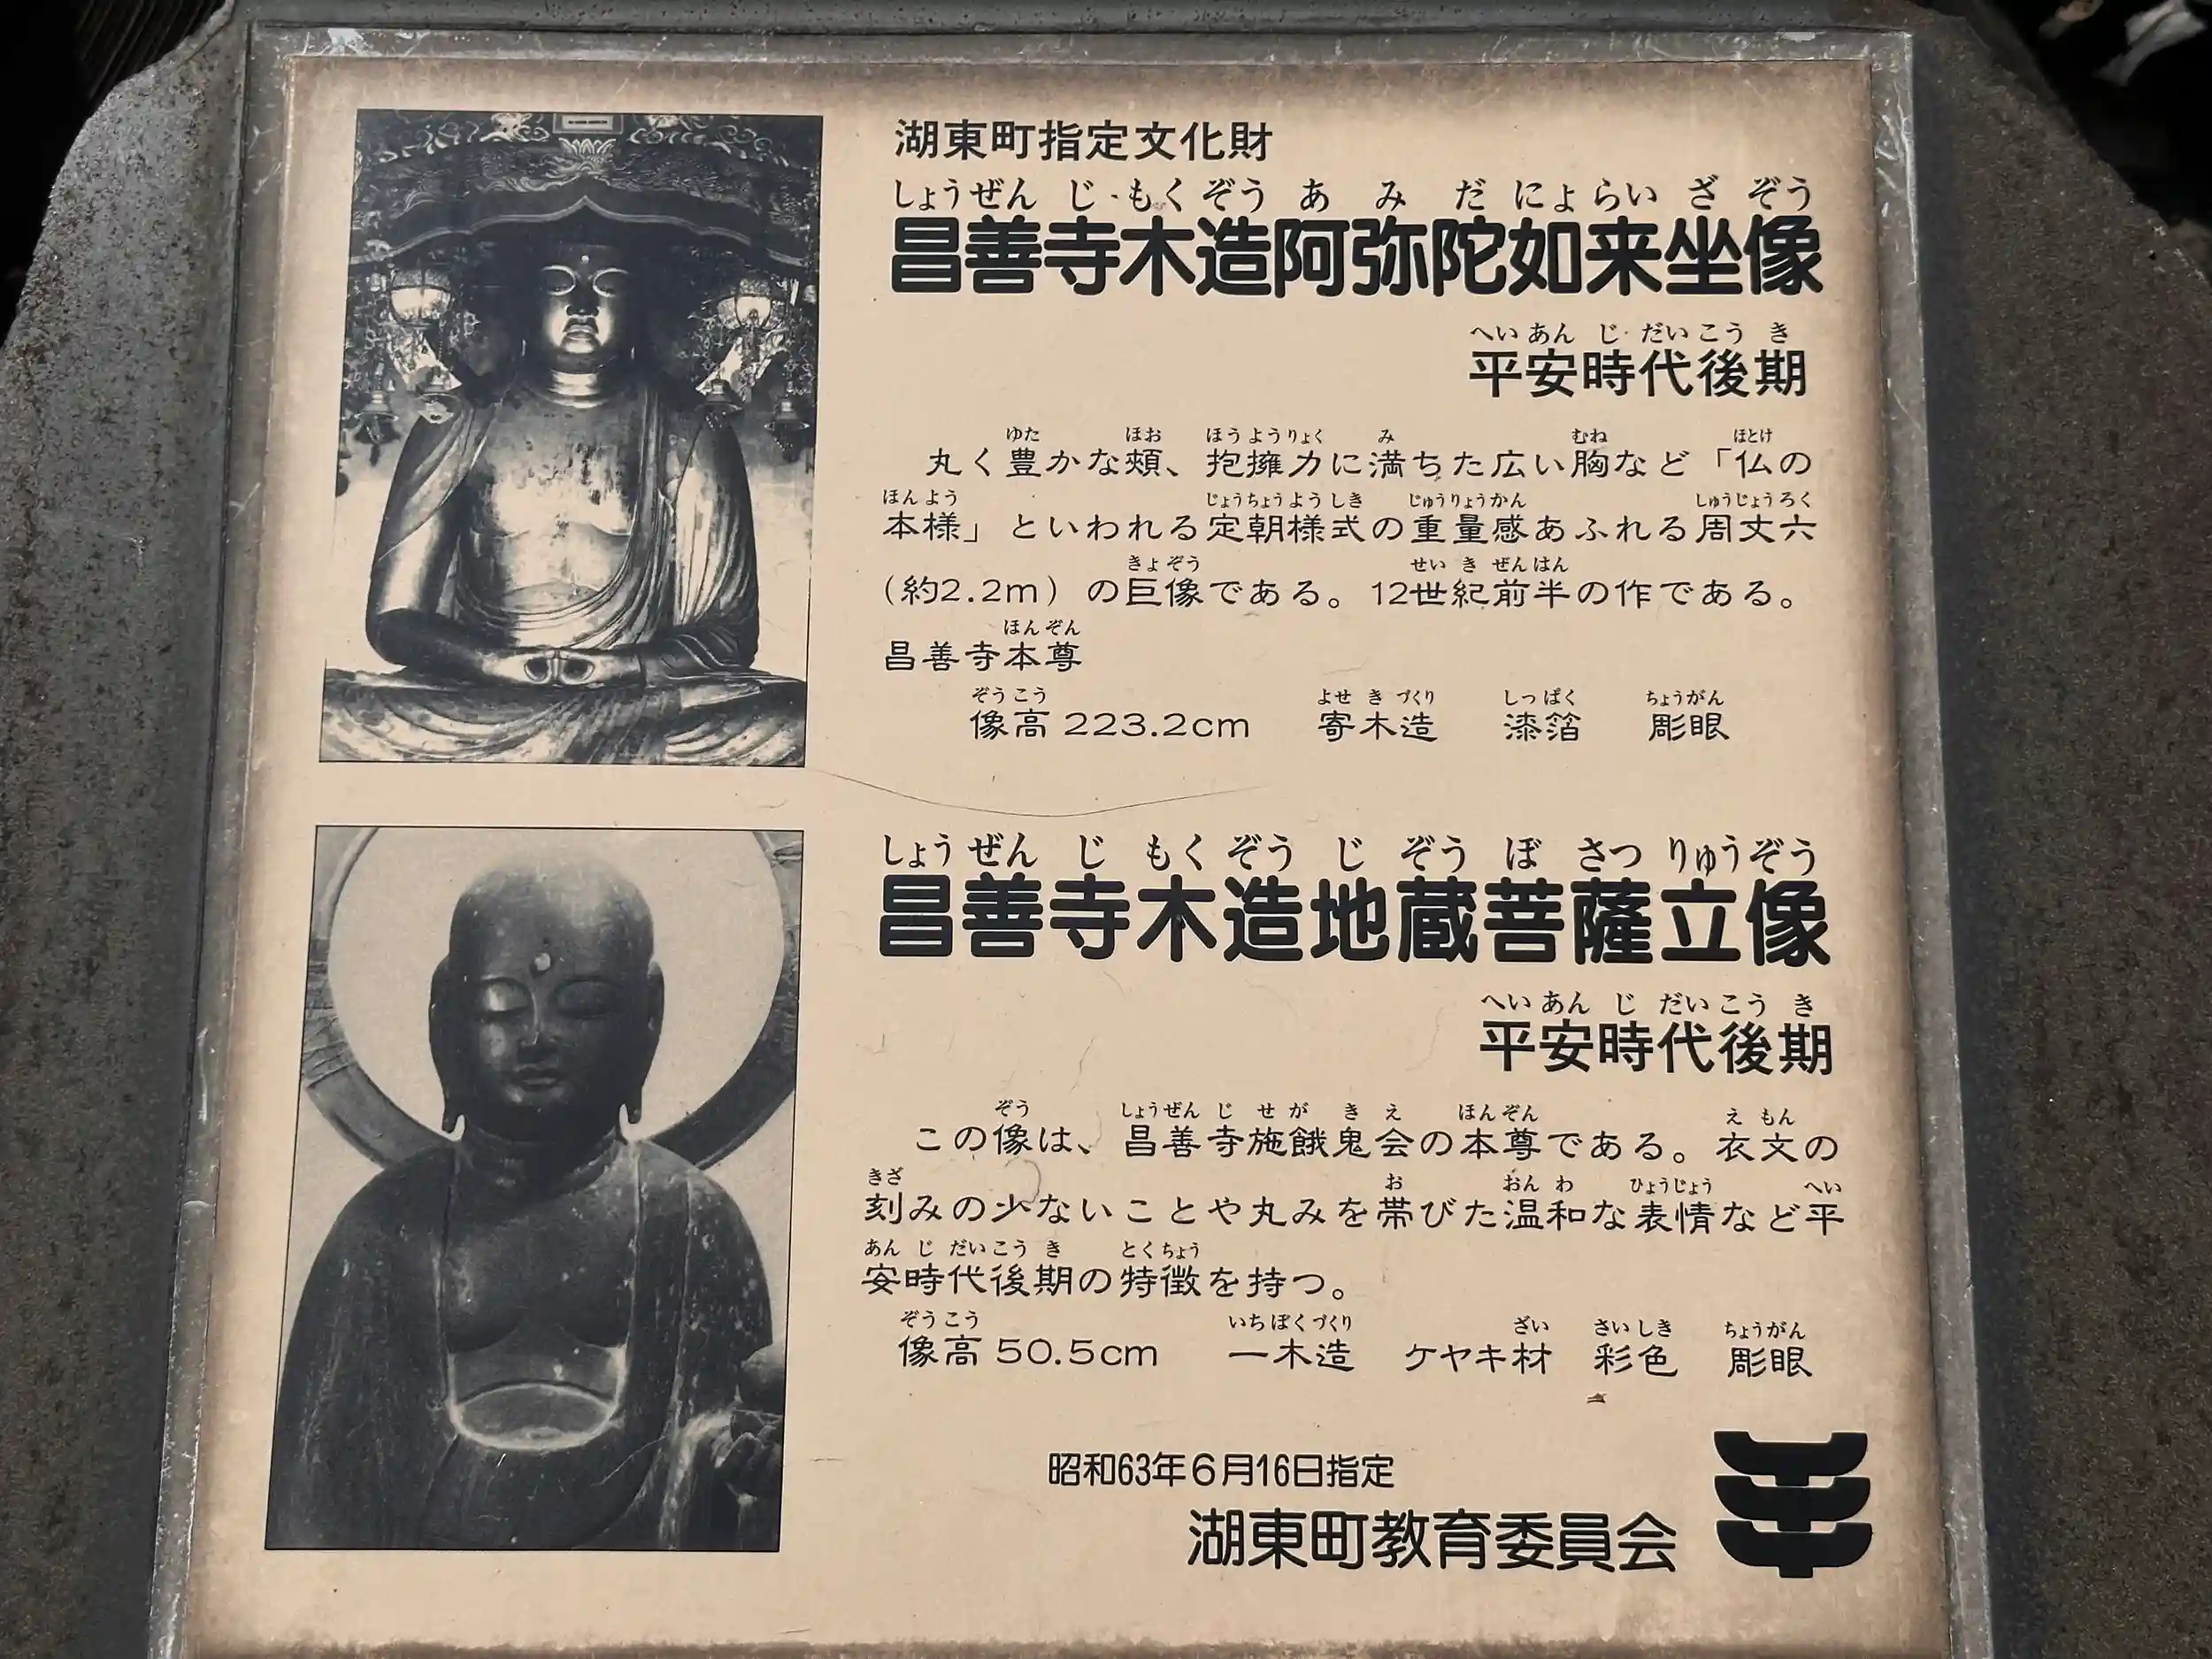 湖東町指定文化財
しょうぜん じ もく ぞう あ み だ にょ らい ざ ぞう
昌善寺木造阿弥陀如来坐像
へい あん じ だい こう き
平安時代後期
ゆた ほお ほう よう りょく み むね ほとけ
丸く豊かな頰、抱擁力に満ちた広い胸など「仏の
ほん よう じょうちょう よう しき じゅうりょうかん しゅうじょうろく
本様」といわれる定朝様式の重量感あふれる周丈六
きょ ぞう せい き ぜん はん
(約2.2m)の巨像である。12世紀前半の作である。
ほん ぞん
昌善寺本尊
ぞう こう よせ き づくり しっ ぱく ちょうがん
像高 223.2cm 寄木造 漆箔 彫眼
しょう ぜん じ もく ぞう じ ぞう ぼ さつ りゅう ぞう
昌善寺木造地蔵菩薩立像
へい あん じ だい こう き
平安時代後期
ぞう しょうぜん じ せ が き え ほん ぞん え もん
この像は、昌善寺施餓鬼会の本尊である。衣文の
きざ お おん わ ひょうじょう へい
刻みの少ないことや丸みを帯びた温和な表情など平
あん じ だい こう き とく ちょう
安時代後期の特徴を持つ。
ぞう こう いち ぼく づくり ざい さい しき ちょうがん
像高 50.5cm 一木造 ケヤキ材 彩色 彫眼
昭和63年6月16日指定
湖東町教育委員会